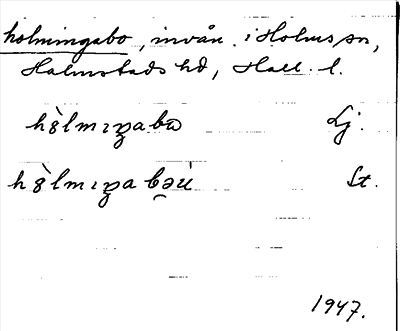 holmingabo, invån. i Holms sn,
Halmstads hd, Hall. l.
Lj.
St.
1947.